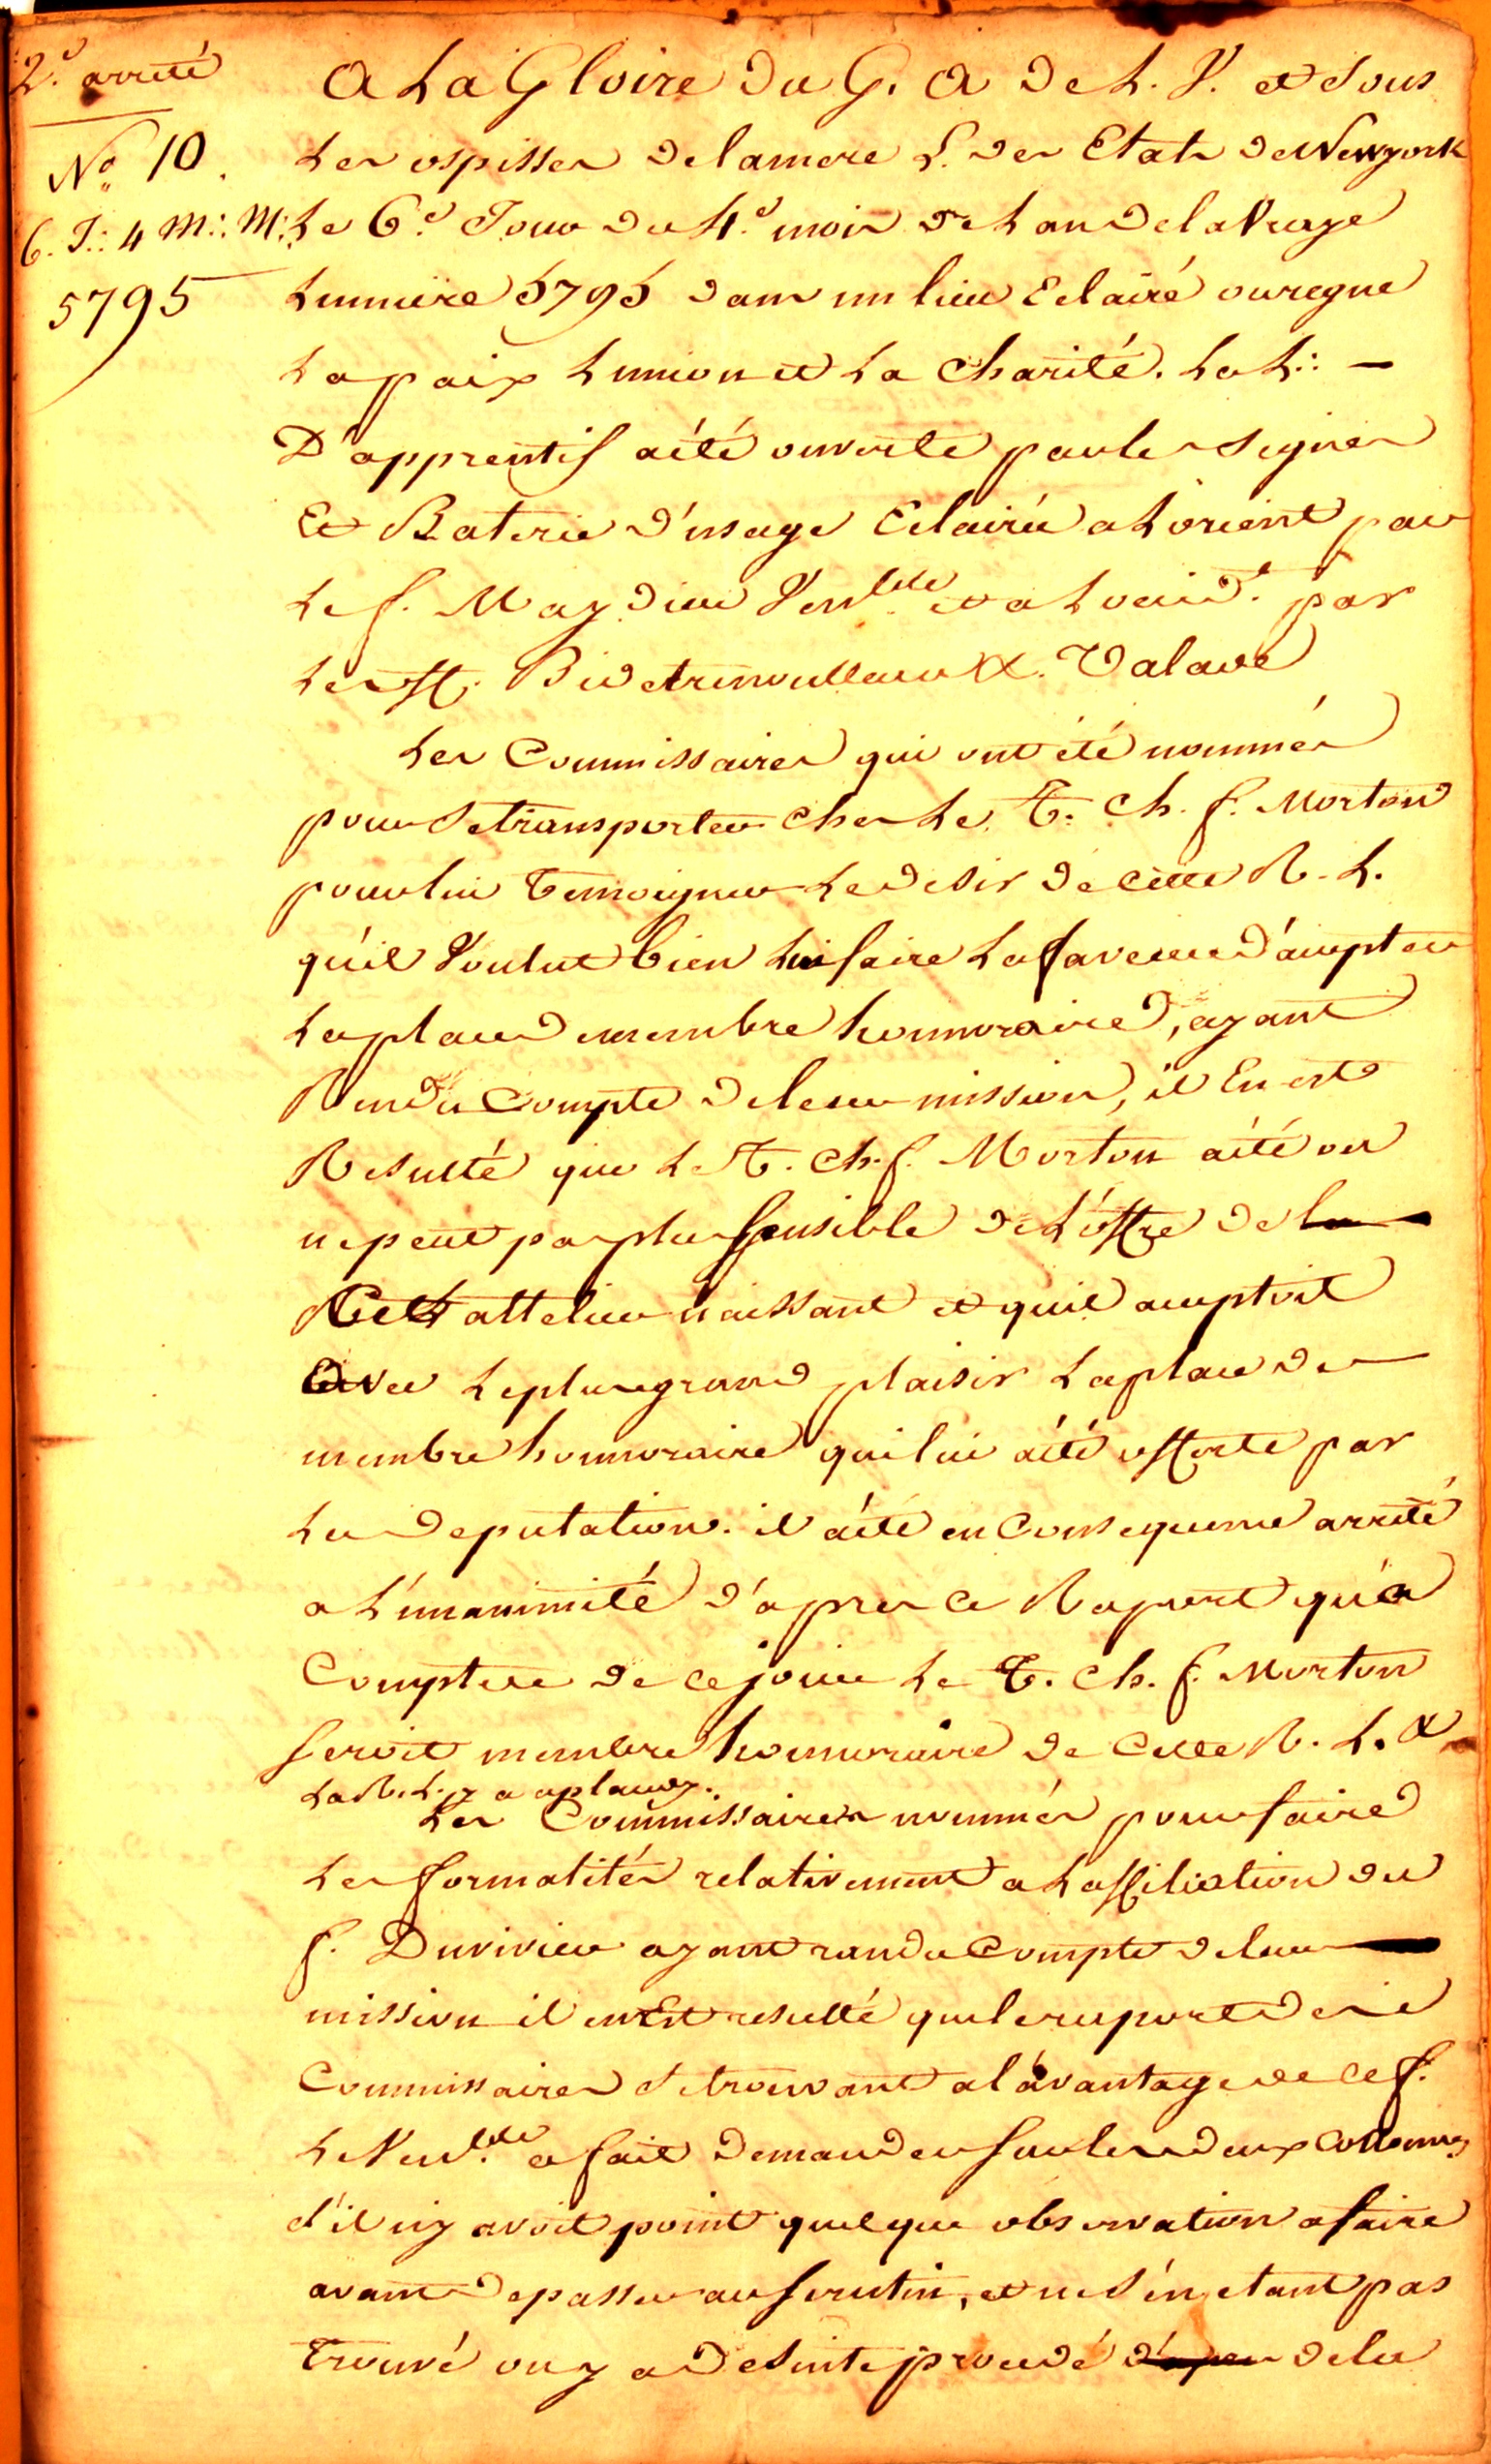 2.e arreté
No 10.
6. J∴ 4 M∴ M∴
5795
A La Gloire Du G. A De L. V. et Sous
Les ospisses De la mere L. Des Etats De Newyork
Le 6.e Jour Du 4.e mois De L an De la Vraye
Lumiere 5795 Dans un lieu Eclairé ou regne
La paix L union et La Charité. La L∴ —
D'apprentif a été ouverte par les Signes
Et Baterie D'usage Eclairée a L orient par
Le f. Mag. Dieu Ven.ble et a L occid.t par
Les ff. Bidetrenoulleau &. Valade
Les Commissaires qui ont été nommés
pour Se transporter ches Le T. Ch. f. Morton
pour lui Temoigner Le Desir De cette R. L.
qu'il Voulut bien Lui faire La faveur D'accepter
La place De membre honnoraire, ayant
Rendu Compte De leur mission, il En est
Resulté que Le T. Ch. f. Morton a été on
ne peut pas plus Sensible De L'offre De
Cet attelier naissant et quil acceptoit
Avec Le plus grand plaisir La place De
membre honnoraire qui lui a été offerte par
La Deputation. il a été en Consequence arreté
a L'unanimité D'apres Ce Raport qu'a
Compter De ce jour Le T. Ch. f. Morton
Seroit membre honnoraire De Cette R. L. &
La R. L. y a aplaudy.
Les Commissaires nommés pour faire
Les formalités relativement a L affiliation Du
f. Duvivier ayant randu Compte De leur
mission il en Est resulté que le raport De Ce
Commissaires Se trouvant a l'avantage De Ce f.
Le Ven.ble a fait Demander Sur les Deux Collonnes
S'il ny avoit point quelque observation a faire
avant De passer au Scrutin, et ne S'en etant pas
Trouvé on y a De Suite procedé De la